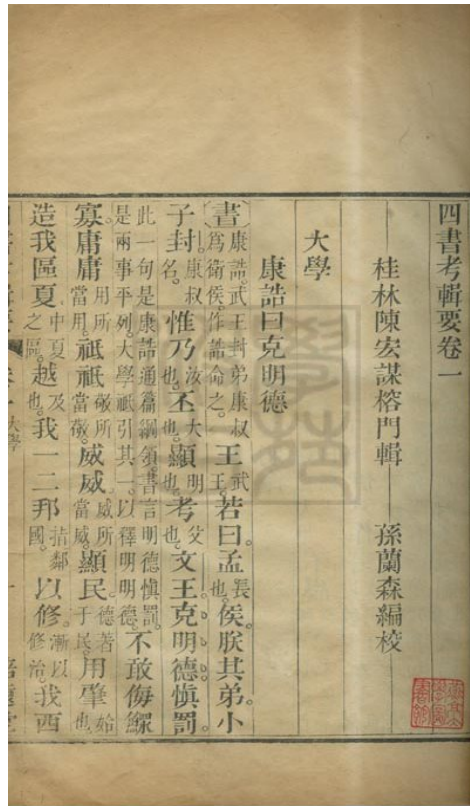 四書考輯要卷一
桂林陳宏謀榕門輯 孫蘭森編校
大學
康誥曰克明德
書康誥。武王封弟康叔為衛侯。作誥命之。王武王若曰。孟長也。侯。朕其弟。小
子封康叔名。惟乃汝也。丕大也。顯明也。考父也。文王。克明德。慎罰。
此一句是康誥通篇綱領。書言明德慎罰。是兩事平列。大學祇引其一。以釋明明德。不敢侮鰥
寡。庸庸用所當用。祗祗敬所當敬。威威威所當威。顯民。德著于民。用肇始也
造我區夏中夏之區。越及也。我一二邦指鄰國。以修。漸以修治我西